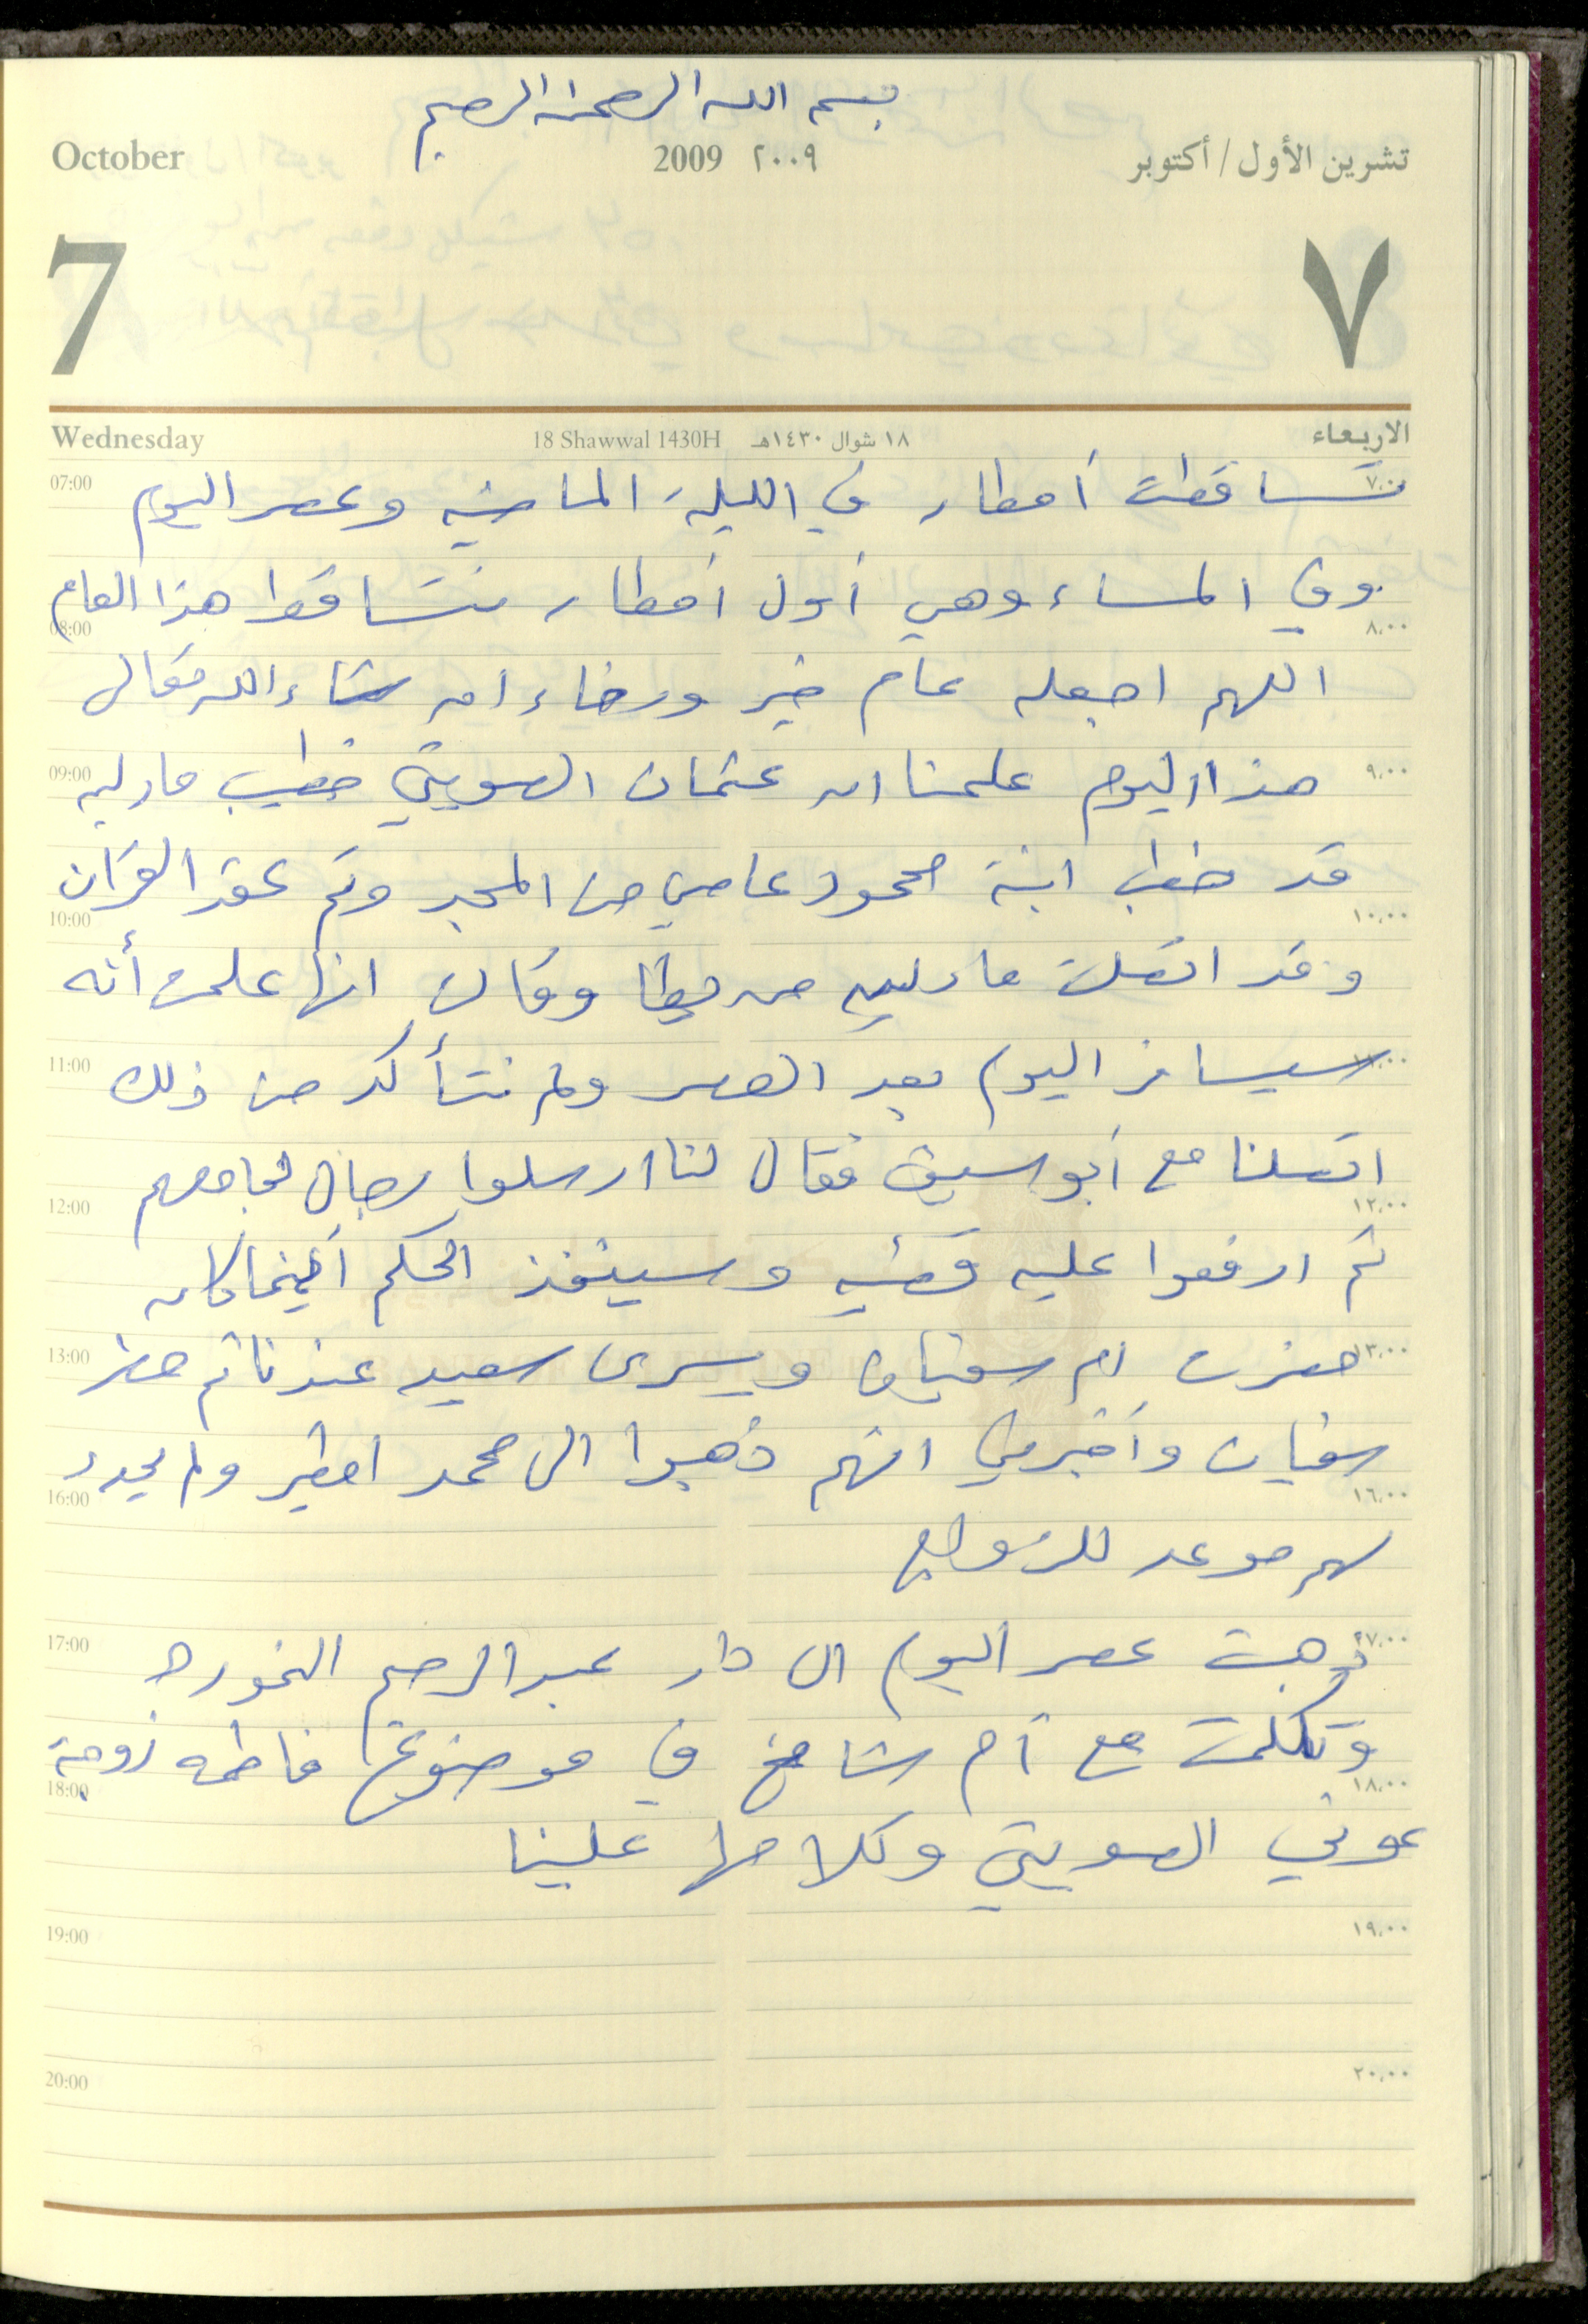 بسم الله الرحمن الرحيم
October 2009 ٢٠٠٩ تشرين الأول / أكتوبر
7 ٧
Wednesday 18 Shawwal 1430H ١٨ شوال ١٤٣٠هـ الاربعاء
07:00 تساقطت أمطار في الليلة الماضيه وعصر اليوم ٧,٠٠
وفي المساء وهي أول أمطار تتساقط هذا العام
08:00 ٨,٠٠
اللهم اجعله عام خير ورخاء ان شاء الله تعالى
09:00 هذا اليوم علمنا ان عثمان الصويتي خطيب مادلين ٩,٠٠
قد خطب ابنة محمود عاصي من المجد وتم عقد القران
10:00 ١٠,٠٠
وقد اتصلت مادلين من يطا وقالت انها علمت أنه
11:00 سيسافر اليوم بعد العصر ولم نتأكد من ذلك ١١,٠٠
اتصلنا مع أبو سيف فقال لنا ارسلوا رجال لجامعهم
12:00 ١٢,٠٠
ثم ارفعوا عليه قضيه وسينفذ الحكم أينما كان
13:00 حضرت ام سفيان ويسرى سعيد عندنا ثم حضر ١٣,٠٠
سفيان وأخبرني انهم ذهبوا الى محمد امطير ولم يحدد
16:00 ١٦,٠٠
لهم موعد للزواج
17:00 ذهبت عصر اليوم الى دار عبد الرحيم النموره ١٧,٠٠
وتكلمت مع أم شامخ في موضوع فاطمه زوجة
18:00 ١٨,٠٠
عوني الصويتي وكلامها علينا
19:00 ١٩,٠٠
20:00 ٢٠,٠٠